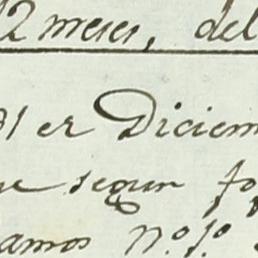 12 meses, del
31 er Diciem
ue segun fo
amos N.º 1.º